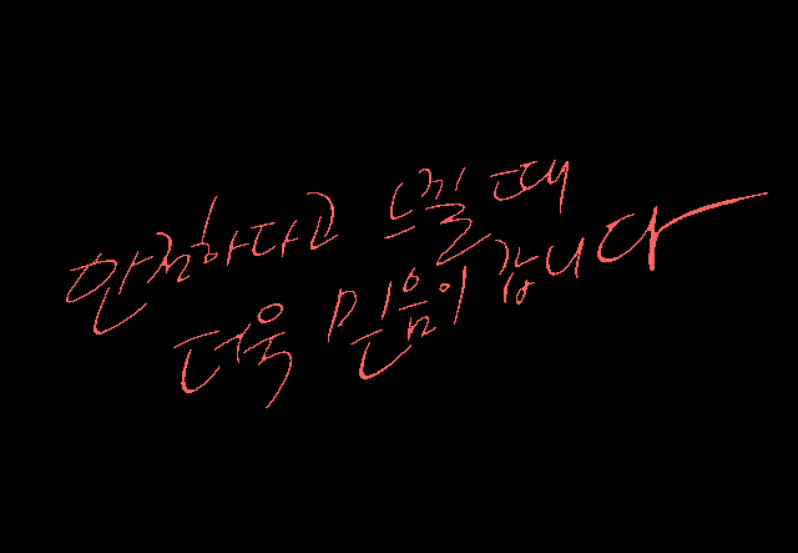 안전하다고 느낄 때
더욱 믿음이 갑니다